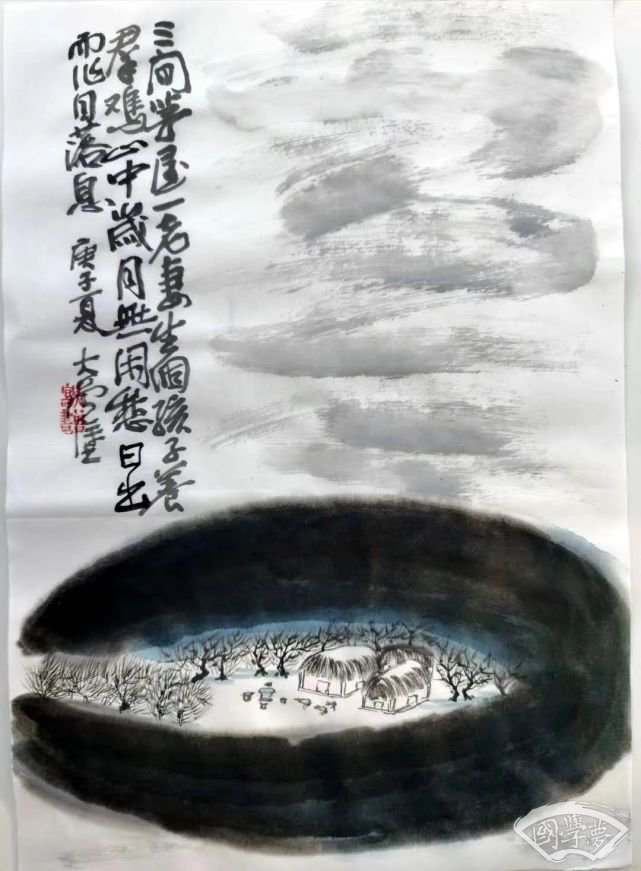 三间茅屋一老妻生個孩子养
群鸡心中歲月無闲愁日出
而作日落息
庚子夏
國學夢